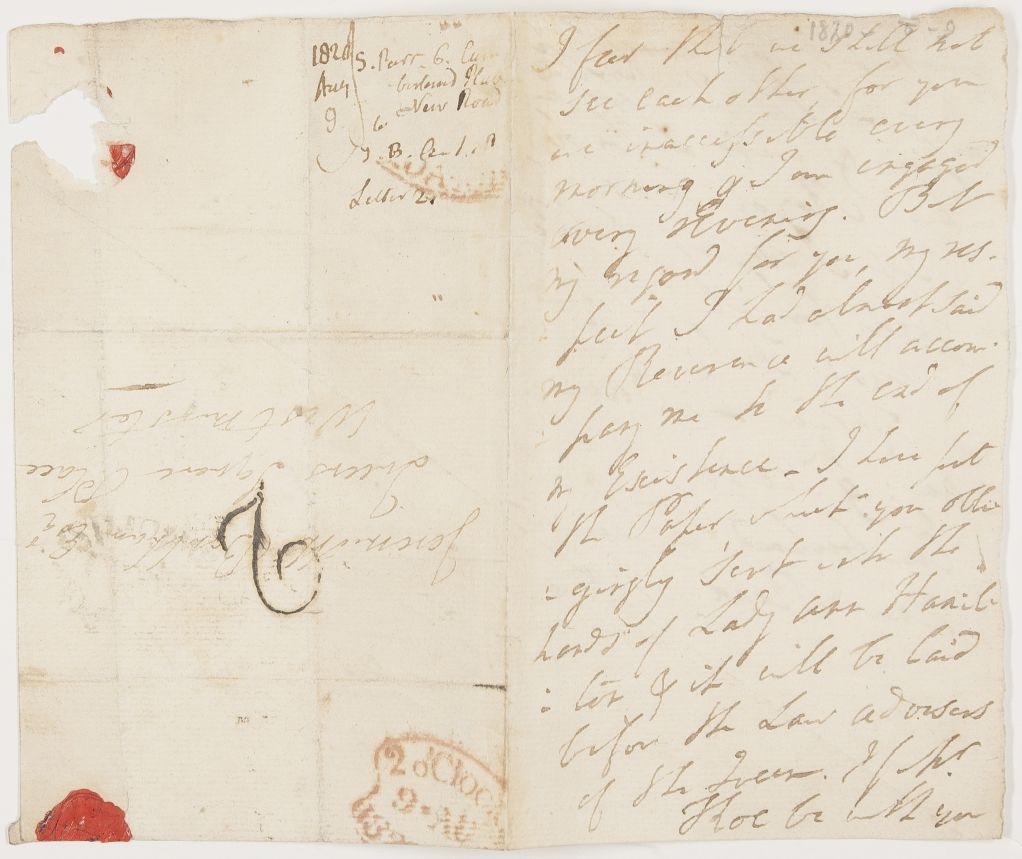 1820
Aug
9
S. Parr. 6. Cum
berland Place
New Road
to
J. B. Q.S.P.
Letter 2.
Jeremiah Bentham Esq
Queens Square Place
Westminster
2 o'Clock
9. AU
1820
I fear that we shall not
see each other, for you
are inaccessible every
morning & I am engaged
every Evening. But
my regard for you, my res-
pect I had almost said
my Reverence will accom-
pany me to the end of
my Existence - I have put
the Paper which you obli
-gingly sent into the
hands of Lady Ann Hamil
-ton & it will be laid
before the Law advisers
of the Queen. If Mr.
Koe be with you